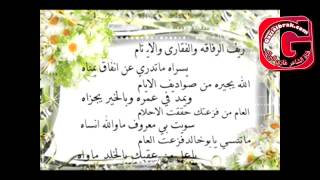 ريف الرفاقه والفقارى والايتام
يسراه ماتدري عن انفاق يمناه
الله يجيره من صواديف الايام
ويمد في عمره وبالخير يجزاه
العام من فزعتك حققت الاحلام
سويت بي معروف ماوالله انساه
ماتنتسي يابوخالد فزعت العام
ياعل من عقبك بالخلد ماواه
G